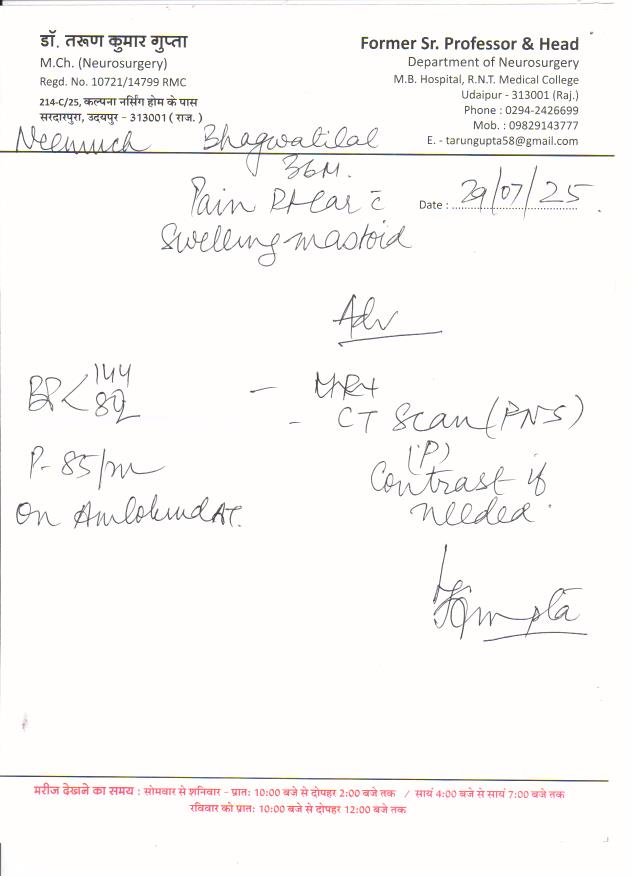 डॉ. तरूण कुमार गुप्ता
M.Ch. (Neurosurgery)
Regd. No. 10721/14799 RMC
214-C/25, कल्पना नर्सिंग होम के पास
सरदारपुरा, उदयपुर - 313001 ( राज. )
Former Sr. Professor & Head
Department of Neurosurgery
M.B. Hospital, R.N.T. Medical College
Udaipur - 313001 (Raj.)
Phone : 0294-2426699
Mob. : 09829143777
E. - tarungupta58@gmail.com
Neemuch Bhagwatilal
36M.
Date : 29/07/25
Pain Rt ear c̄
Swelling mastoid
Adv
BP < 144
82
P- 85/m
On Amlokind AT
- CT Scan (PNS)
(P)
Contrast if
needed.
TKGupta
मरीज देखने का समय : सोमवार से शनिवार - प्रातः 10:00 बजे से दोपहर 2:00 बजे तक / सायं 4:00 बजे से सायं 7:00 बजे तक
रविवार को प्रातः 10:00 बजे से दोपहर 12:00 बजे तक